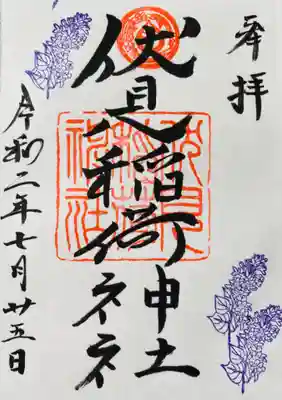 奉拝
伏見稲荷神社
令和二年七月廿五日